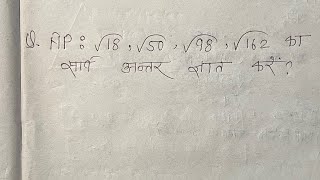 Q. AP: √18, √50, √98, √162 का
सार्व अन्तर ज्ञात करें?